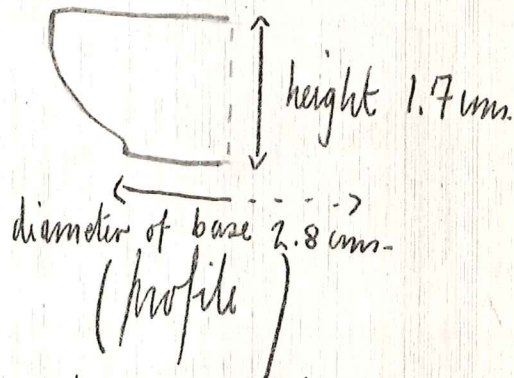 height 1.7 cms.
diameter of base 2.8 cms.
(profile)